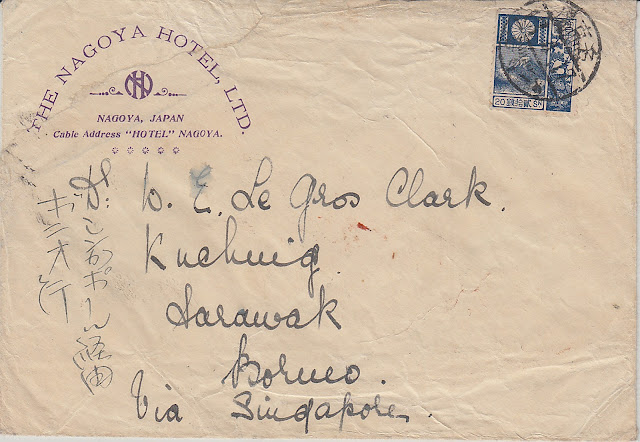 THE NAGOYA HOTEL, LTD.
NAGOYA, JAPAN
Cable Address "HOTEL" NAGOYA.
20 錢拾貳 Sn
Dr. W. E. Le Gros Clark.
Kuching
Sarawak
Borneo.
Via Singapore.
シンガポール経由
ボニオ行